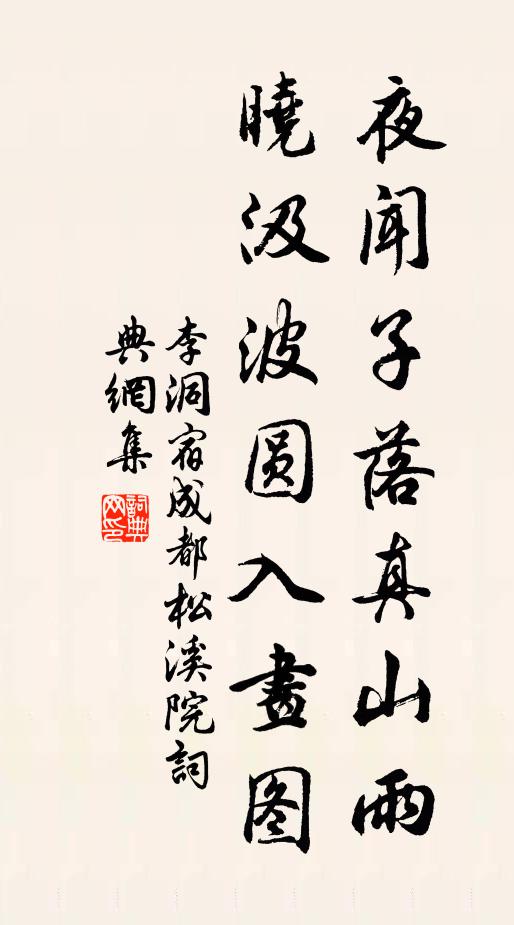 夜闻子落真山雨
晓汲波圆入畫图
李洞宿成都松溪院詞
典網集
詞典网印